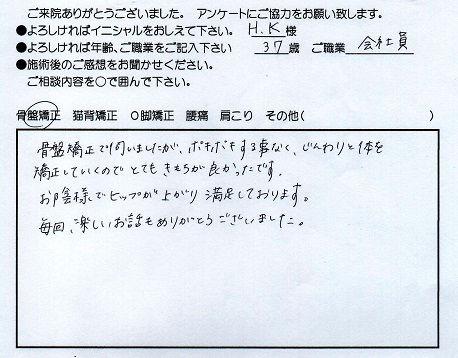 ご来院ありがとうございました。 アンケートにご協力をお願い致します。
●よろしければイニシャルをおしえて下さい。 H.K 様
●よろしければ年齢、ご職業をご記入下さい 37 歳 ご職業 会社員
●施術後のご感想をお聞かせください。
ご相談内容を○で囲んで下さい。
骨盤矯正 猫背矯正 O脚矯正 腰痛 肩こり その他( )
骨盤矯正で伺いましたが、ボキボキする事なく、じんわりと体を
矯正していくのでとてもきもちが良かったです。
お陰様でヒップが上がり満足しております。
毎回、楽しいお話もありがとうございました。